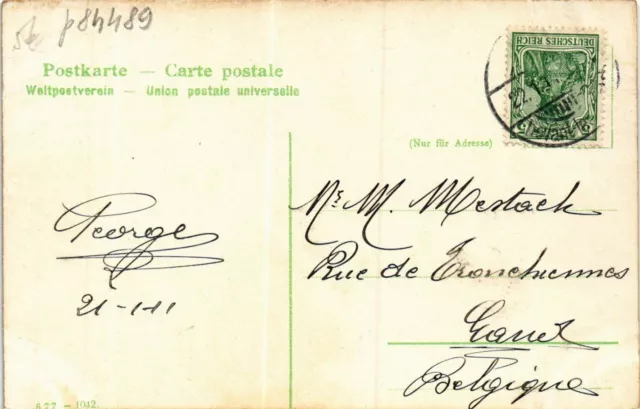 p84489
Postkarte — Carte postale
Weltpostverein — Union postale universelle
DEUTSCHES REICH
(Nur für Adresse)
George
21-1-11
Mr. M. Mestach
Rue de Tronchiennes
Gand
Belgique
677 — 1042.